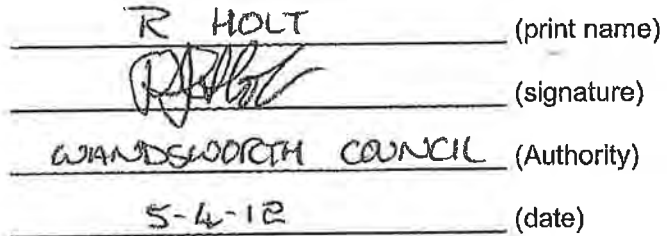 R HOLT (print name)
(signature)
WANDSWORTH COUNCIL (Authority)
5-4-12 (date)